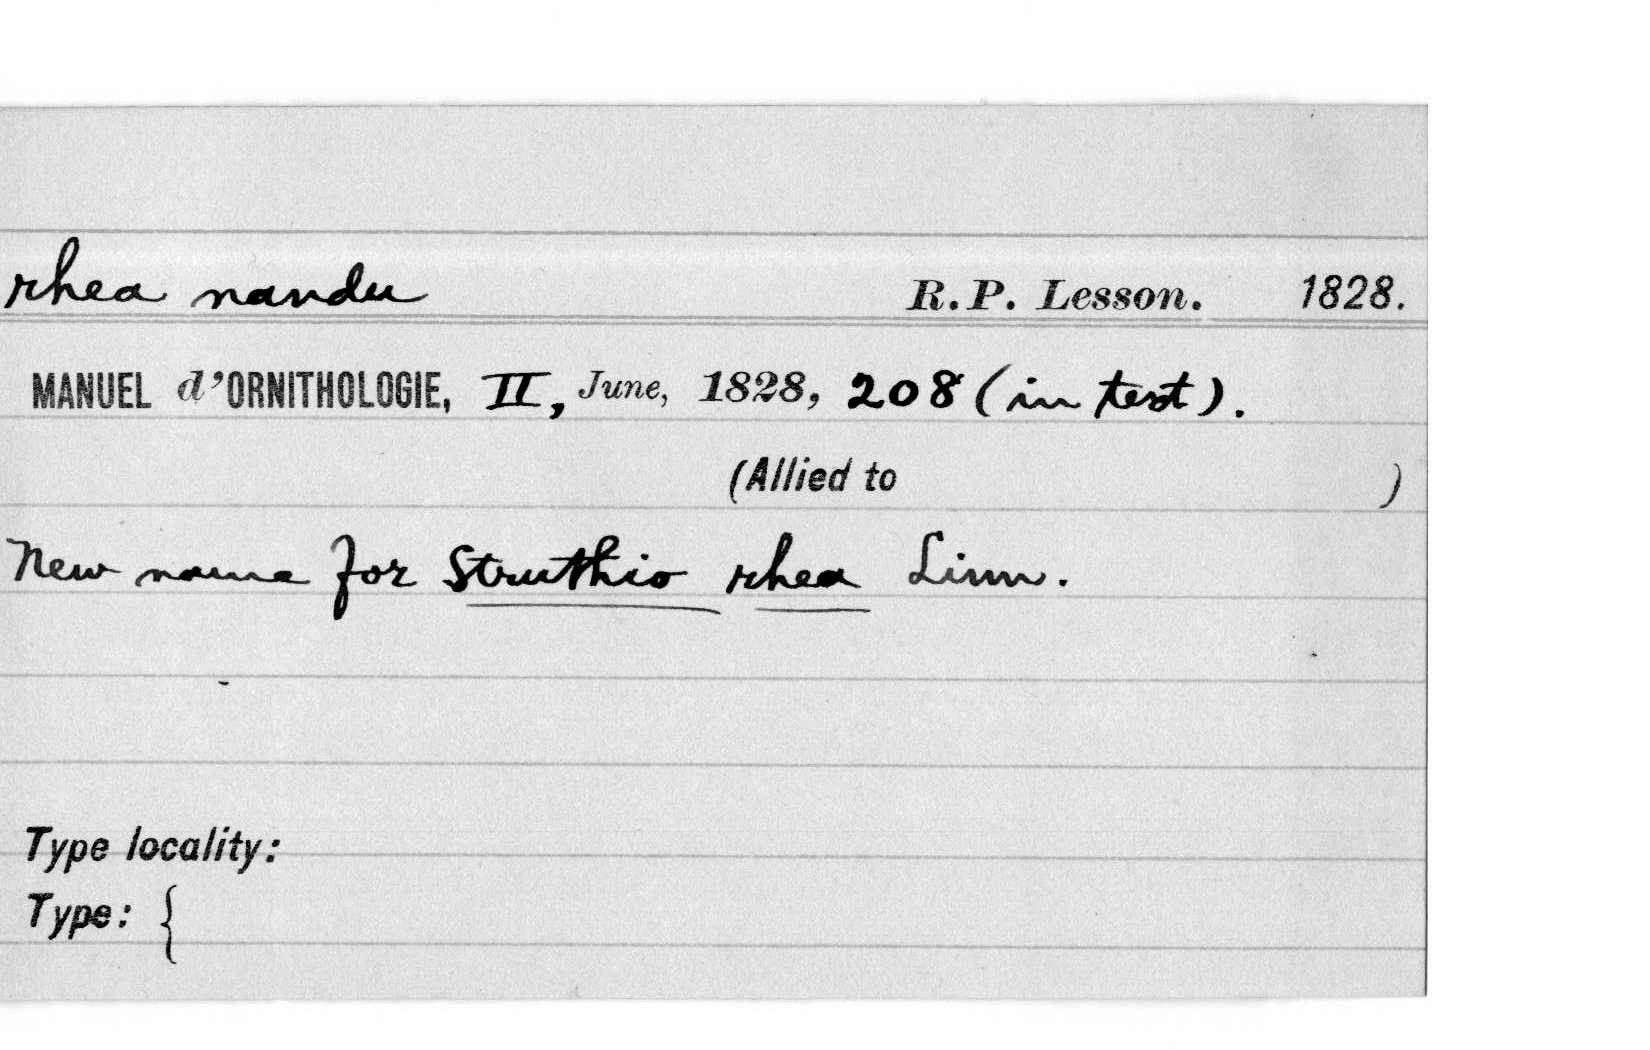 rhea nandu R.P. Lesson. 1828.
MANUEL d'ORNITHOLOGIE, II, June, 1828, 208 (in text).
(Allied to )
New name for Struthio rhea Linn.
Type locality:
Type: {